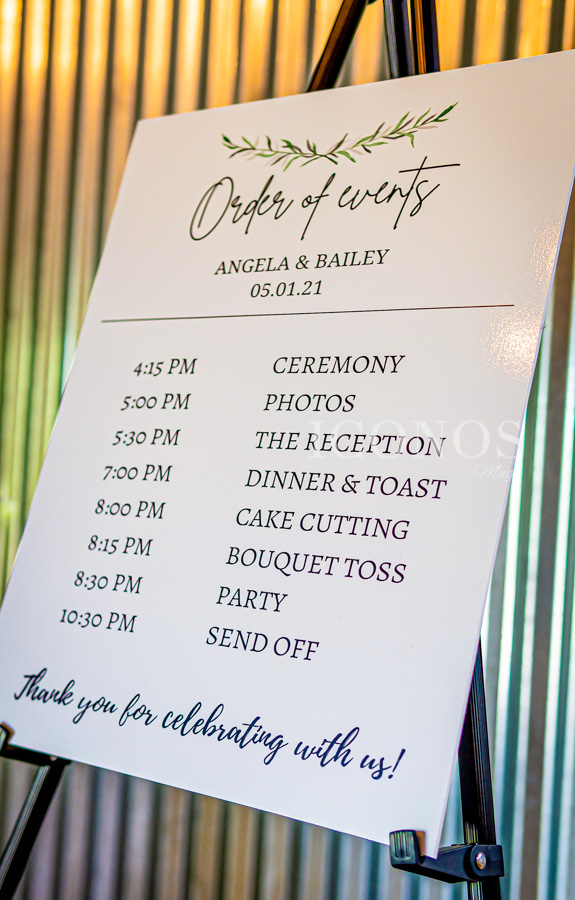 Order of events
ANGELA & BAILEY
05.01.21
4:15 PM CEREMONY
5:00 PM PHOTOS
5:30 PM THE RECEPTION
7:00 PM DINNER & TOAST
8:00 PM CAKE CUTTING
8:15 PM BOUQUET TOSS
8:30 PM PARTY
10:30 PM SEND OFF
Thank you for celebrating with us!
ICONOS